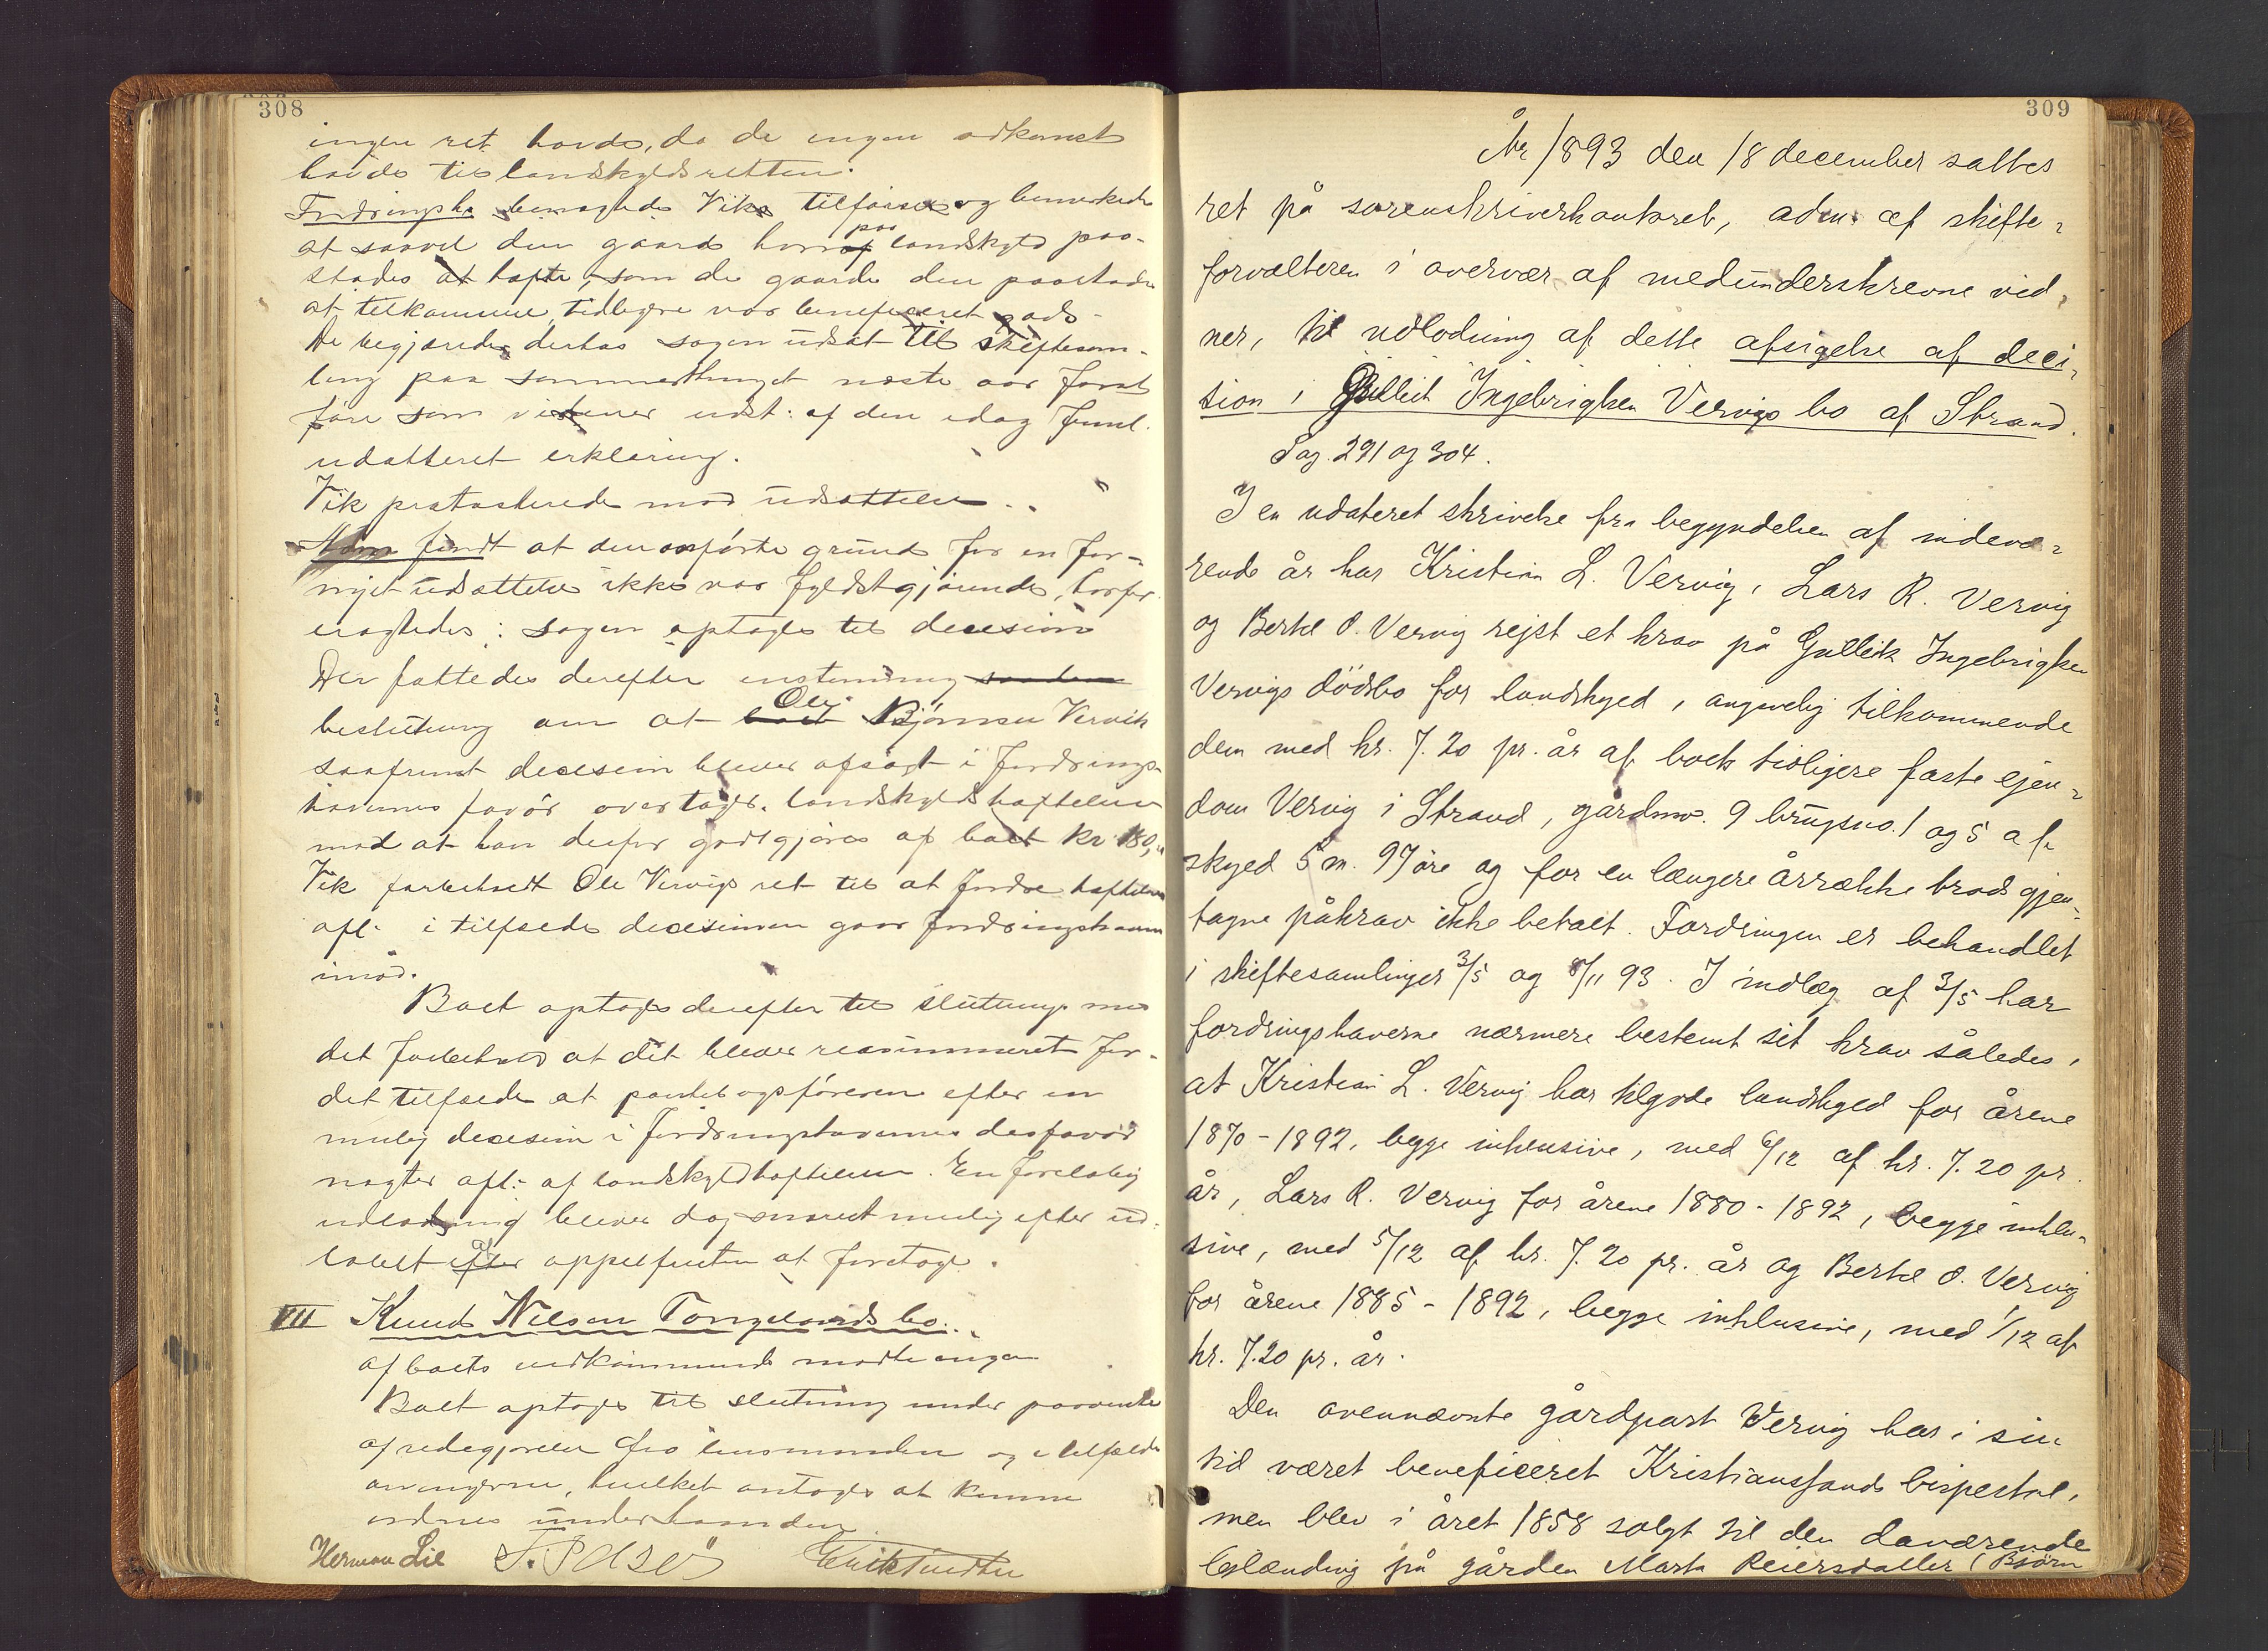 308
ingen ret havde, da de ingen adkomst
havde til landskyldretten.
Fordringsh. benægtede Viks tilførsel og bemærkede
at saavel den gaard hvorpaa landskyld paa-
stades at hefte, som de gaarde den paastades
at tilkomme, tidligere var beneficeret gods.
De begjærede derhos sagen udsat til skiftesam-
ling paa sommerthinget næste aar forat
føre som vidner udst: af den idag freml.
udatteret erklæring.
Vik protesterede mod udsættelse.
Adm fandt at den anførte grund for en for-
nyet udsættelse ikke var fyldstgjørende, hvorfor
eragtedes: sagen optages til decision
Der fattedes derefter enstemmig
beslutning om at Ole Bjørnsen Vervik
saafremt decision bliver afsagt i fordrings-
havernes favør overtager landskyldheftelsen
mod at han derfor godtgjøres af boet kr 180,
Vik forbeholdt Ole Vervigs ret til at fordre heftelsen
afl. i tilfælde decisionen gaar fordringshaverne
imod.
Boet optages derefter til slutning med
det forbehold at det bliver reasummeret for-
det tilfælde at pantebogsføreren efter en
mulig decision i fordringshavernes disfavør
nægter afl: af landskyldheftelsen. En foreløbig
udlodning bliver dog snarest mulig efter ud-
løbet af appelfristen at foretage.
VII Knud Nilsen Tongelands bo.
af boets vedkommende mødte ingen
Boet optages til slutning under paavente
af redegjørelse fra lensmanden og i tilfælde
arvingerne, hvilket antages at kunne
ordnes underhaanden
Herman Lie
309
År 1893 den 18 december sattes
ret på sorenskriverkontoret, adm. af skifte-
forvalteren i overvær af medunderskrevne vid-
ner, til udlodning af dette afsigelse af deci-
sion i Gulleik Ingebrigtsen Vervigs bo af Strand.
Pag. 291 og 304.
I en udateret skrivelse fra begyndelsen af indevæ-
rende år har Kristian L. Vervig, Lars R. Vervig
og Bertel O. Vervig rejst et krav på Gulleik Ingebrigtsen
Vervigs dödsbo for landskyld, angivelig tilkommende
dem med kr. 7.20 pr. år af boets tidligere faste ejen-
dom Vervig i Strand, gårdno. 9 brugsno. 1 og 5 af
skyld 5 m. 97 øre og for en længere årrække trods gjen-
tagne påkrav ikke betalt. Fordringen er behandlet
i skiftesamlinger 3/5 og 8/11 93. I indlæg af 3/5 har
fordringshaverne nærmere bestemt sit krav således,
at Kristian L. Vervig har tilgode landskyld for årene
1870 - 1892, begge inklusive, med 6/12 af kr. 7.20 pr.
år, Lars R. Vervig for årene 1880 - 1892, begge inklu-
sive, med 5/12 af kr. 7.20 pr. år og Bertel O. Vervig
for årene 1885 - 1892, begge inklusive, med 1/12 af
kr. 7.20 pr. år.
Den ovennævnte gårdpart Vervig har i sin
tid været beneficeret Kristianssands bispestol,
men blev i året 1858 solgt til den daværende
leilænding på gården Marta Reiersdatter (Bjørn